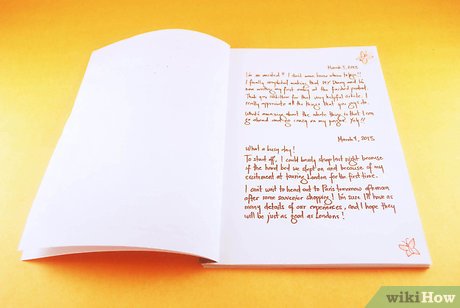 March 7, 2015
I'm so excited! I don't even know where to begin!!
I finally completed making this DIY Diary and I'm
now writing my first entry at the finished product.
Thank you wikiHow for that very helpful article. I
really appreciate all the things that you guys do.
What's amazing about the whole thing is that I can
go ahead and on my Yey!!
March 8, 2015
What a busy day!
To start off, I could barely sleep last night because
of the hard bed we slept on and because of my
excitement at touring London for the first time.
I can't wait to head out to Paris tomorrow afternoon
after some souvenier shopping! I'm sure I'll have as
many details of our experiences, and I hope they
will be just as good as Londons!
wikiHow